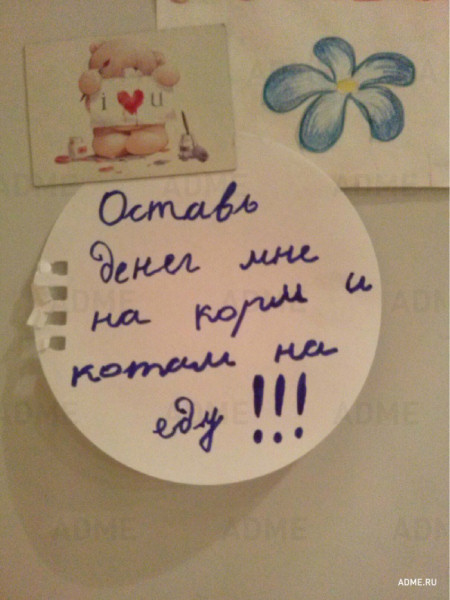 i ❤ u
Оставь
денег мне
на корм и
котам на
еду !!!
ADME
ADME
ADME
ADME
ADME
ADME
ADME
ADME
ADME.RU